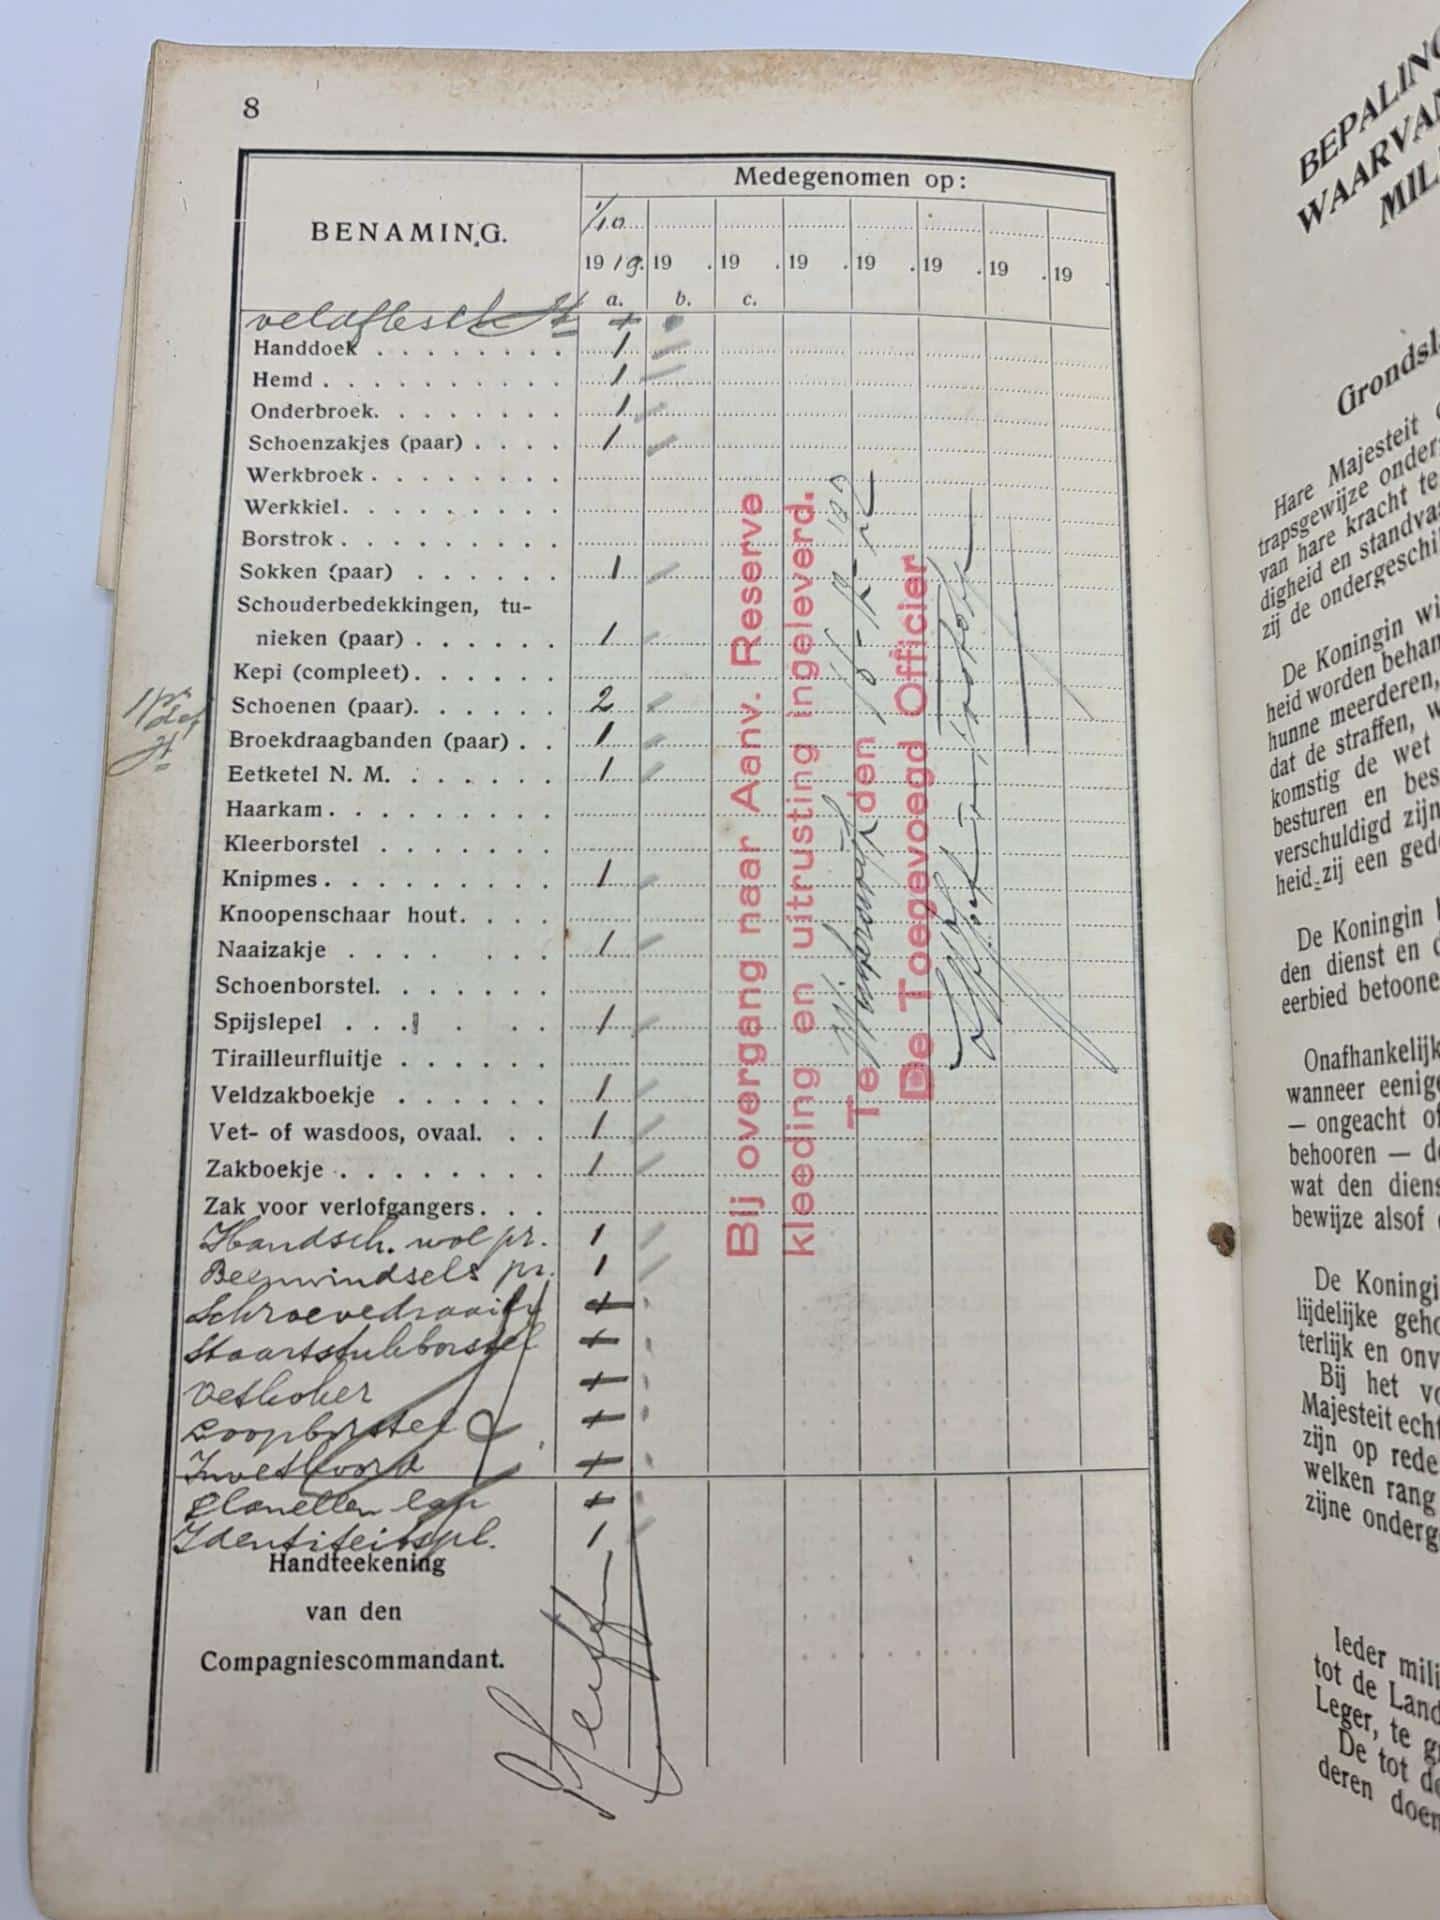 8
BENAMING.
Medegenomen op:
1/10
19 19. 19 . 19 . 19 . 19 . 19 . 19 . 19 .
a. b. c.
veldflesch +
Handdoek . . . . . . . 1
Hemd . . . . . . . . . 1
Onderbroek. . . . . . . 1
Schoenzakjes (paar) . . . . 1
Werkbroek . . . . . . . .
Werkkiel. . . . . . . . .
Borstrok . . . . . . . . .
Sokken (paar) . . . . . . 1
Schouderbedekkingen, tu-
nieken (paar) . . . . . . 1
Kepi (compleet). . . . . .
Schoenen (paar). . . . . . 2
Broekdraagbanden (paar) . . 1
Eetketel N. M. . . . . . . 1
Haarkam . . . . . . . . .
Kleerborstel . . . . . . .
Knipmes . . . . . . . . . 1
Knoopenschaar hout. . . .
Naaizakje . . . . . . 1
Schoenborstel. . . . . . .
Spijslepel . . . . . . 1
Tirailleurfluitje . . . . . .
Veldzakboekje . . . . . . 1
Vet- of wasdoos, ovaal. . . 1
Zakboekje . . . . . . . . 1
Zak voor verlofgangers . . .
Handsch. wol pr. 1
Beenwindsels pr. 1
Schroevedraaier +
Staartstukborstel +
Vetkoker +
Loopborstel +
Invetkoord +
flanellen lap +
Identiteitspl. 1
Handteekening
van den
Compagniescommandant.
1 pr
Bij overgang naar Aanv. Reserve
kleeding en uitrusting ingeleverd.
Te den
De Toegevoegd Officier
BEPALING
WAARVAN
MIL
Grondsl
Hare Majesteit
trapsgewijze onder
van hare kracht te
digheid en standva
zij de ondergeschi
De Koningin wi
heid worden behan
hunne meerderen,
dat de straffen, w
komstig de wet
besturen en bes
verschuldigd zijn
heid zij een ged
De Koningin
den dienst en d
eerbied betoone
Onafhankelijk
wanneer eenig
— ongeacht of
behooren — d
wat den diens
bewijze alsof
De Koningi
lijdelijke geho
terlijk en onv
Bij het vo
Majesteit echt
zijn op rede
welken rang
zijne onderg
Ieder mili
tot de Land
Leger, te g
De tot de
deren doen